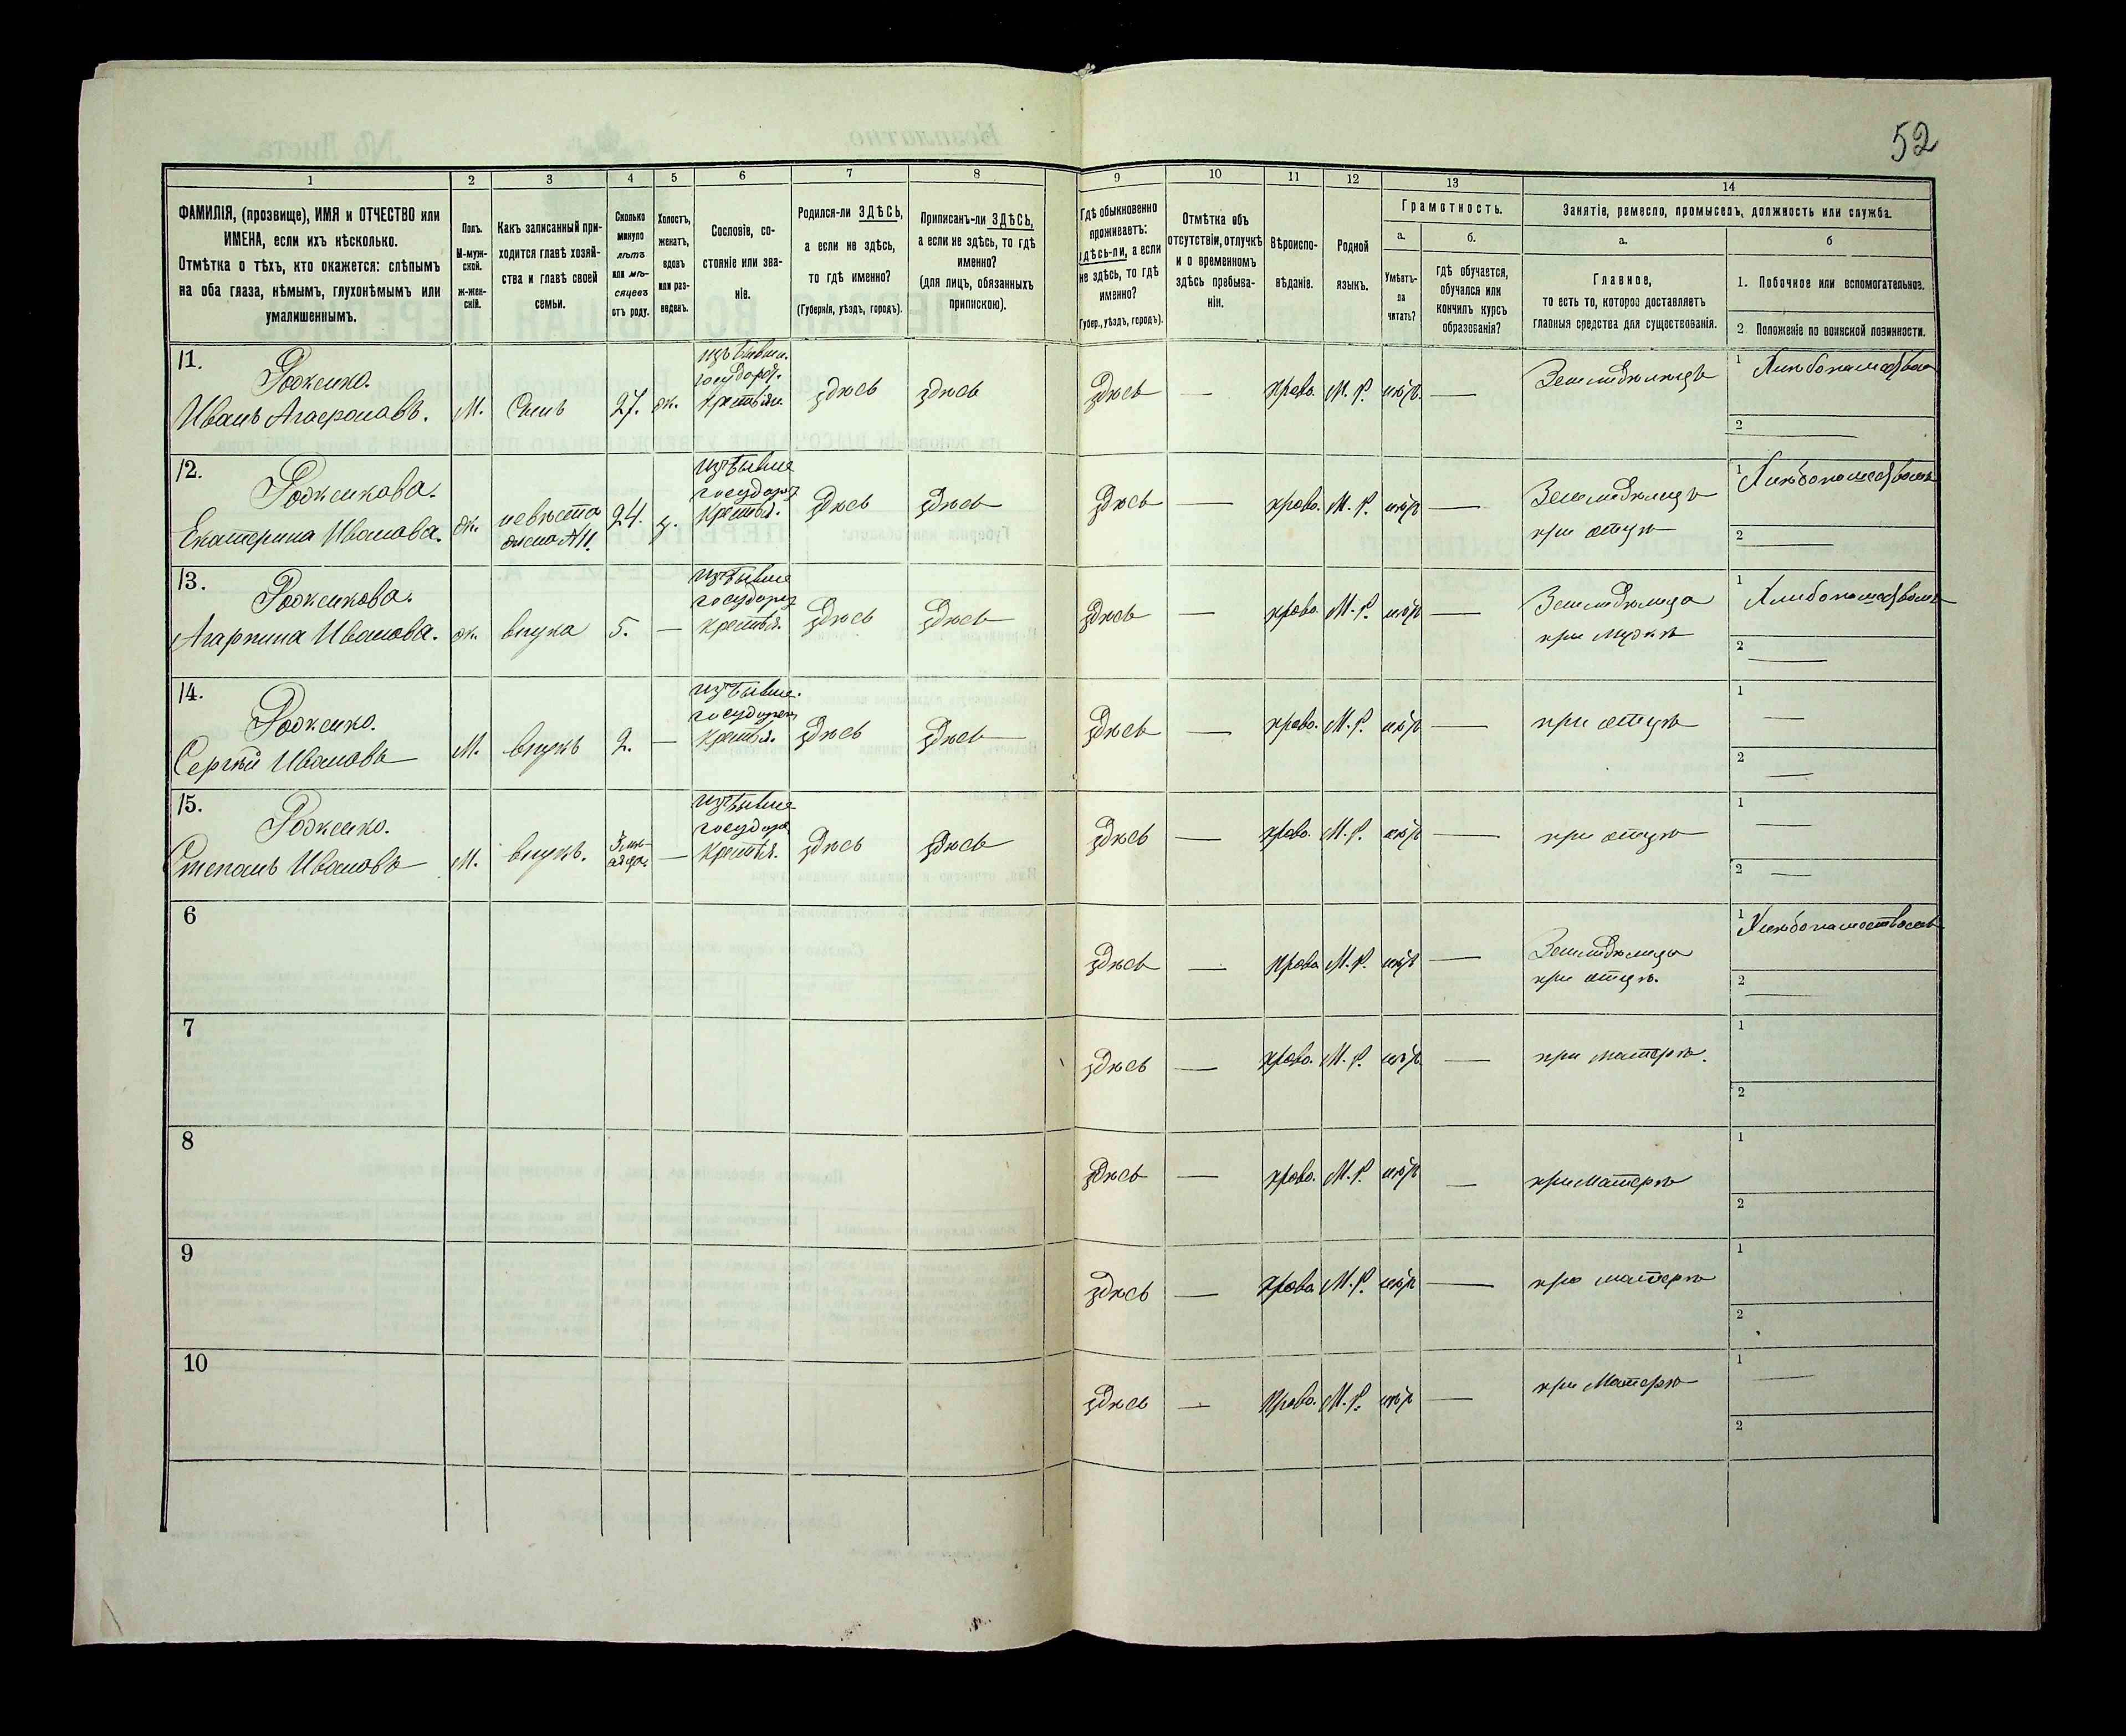 52
1 2 3 4 5 6 7 8 9 10 11 12 13 14
ФАМИЛІЯ, (прозвище), ИМЯ и ОТЧЕСТВО или
ИМЕНА, если ихъ нѣсколько.
Отмѣтка о тѣхъ, кто окажется: слѣпымъ
на оба глаза, нѣмымъ, глухонѣмымъ или
умалишеннымъ.
Полъ.
М-муж-
ской.
ж-жен-
скій.
Какъ записанный при-
ходится главѣ хозяй-
ства и главѣ своей
семьи.
Сколько
минуло
лѣтъ
или мѣ-
сяцевъ
отъ роду.
Холостъ,
женатъ,
вдовъ
или раз-
веденъ.
Сословіе, со-
стояніе или зва-
ніе.
Родился-ли ЗДѢСЬ,
а если не здѣсь,
то гдѣ именно?
(Губернія, уѣздъ, городъ).
Приписанъ-ли ЗДѢСЬ,
а если не здѣсь, то гдѣ
именно?
(для лицъ, обязанныхъ
припискою).
Гдѣ обыкновенно
проживаетъ:
здѣсь-ли, а если
не здѣсь, то гдѣ
именно?
(Губер., уѣздъ, городъ).
Отмѣтка объ
отсутствіи, отлучкѣ
и о временномъ
здѣсь пребыва-
ніи.
Вѣроиспо-
вѣданіе.
Родной
языкъ.
Грамотность.
а.
Умѣетъ-
ли
читать?
б.
гдѣ обучается,
обучался или
кончилъ курсъ
образованія?
Занятіе, ремесло, промыселъ, должность или служба.
а.
Главное,
то есть то, которое доставляетъ
главныя средства для существованія.
б
1. Побочное или вспомогательное.
2. Положеніе по воинской повинности.
11.
Роженко.
Иванъ Агафоновъ. М. Сынъ 27. ж.
изъ бывш.
государ.
крестьян.
здѣсь здѣсь здѣсь — право. М. Р. нѣтъ —
Земледѣлецъ
1 Хлѣбопашество
2 —
12.
Роженкова.
Екатерина Иванова. ж.
невѣста
жена №11.
24. з.
изъ бывше
государ
крестья.
здѣсь здѣсь здѣсь — право. М. Р. нѣтъ —
Земледѣлецъ
при отцѣ
1
2 —
13.
Роженкова.
Агарпина Иванова. ж. внука 5. —
изъ бывше
государ
крестья.
здѣсь здѣсь здѣсь — право. М. Р. нѣтъ —
Земледѣлица
при мужѣ
1
2 —
14.
Роженко.
Сергѣй Ивановъ М. внукъ 2. —
изъ бывше.
государ
крестья.
здѣсь здѣсь здѣсь — право. М. Р. нѣтъ —
при отцѣ
1 —
2 —
15.
Роженко.
Степанъ Ивановъ М. внукъ. —
изъ бывше
государ
крестья.
здѣсь здѣсь здѣсь — право. М. Р. нѣтъ —
при отцѣ
1 —
2 —
6
здѣсь — право М. Р. нѣтъ —
Земледѣлица
при отцѣ.
1 Хлѣбопашествомъ
2 —
7
здѣсь — право. М. Р. нѣтъ — при матерѣ.
1
2
8
здѣсь — право. М. Р. нѣтъ — при Матерѣ
1
2
9
здѣсь — право М. Р. нѣтъ — при матерѣ
1
2
10
здѣсь — право. М. Р. нѣтъ — при Матерѣ
1 —
2